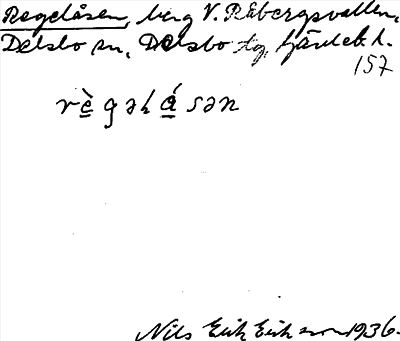 Regelåsen, berg V. Råbergsvallen,
Delsbo sn, Delsbo tg, Gävleb. l.
157
rè̲gəlá̲sən
Nils Erik Eriksson 1936.